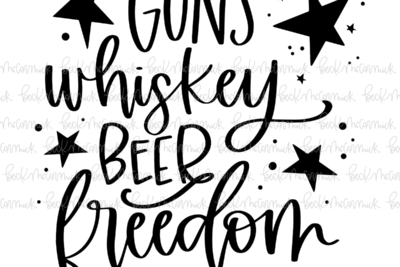 GUNS
whiskey
BEER
freedom